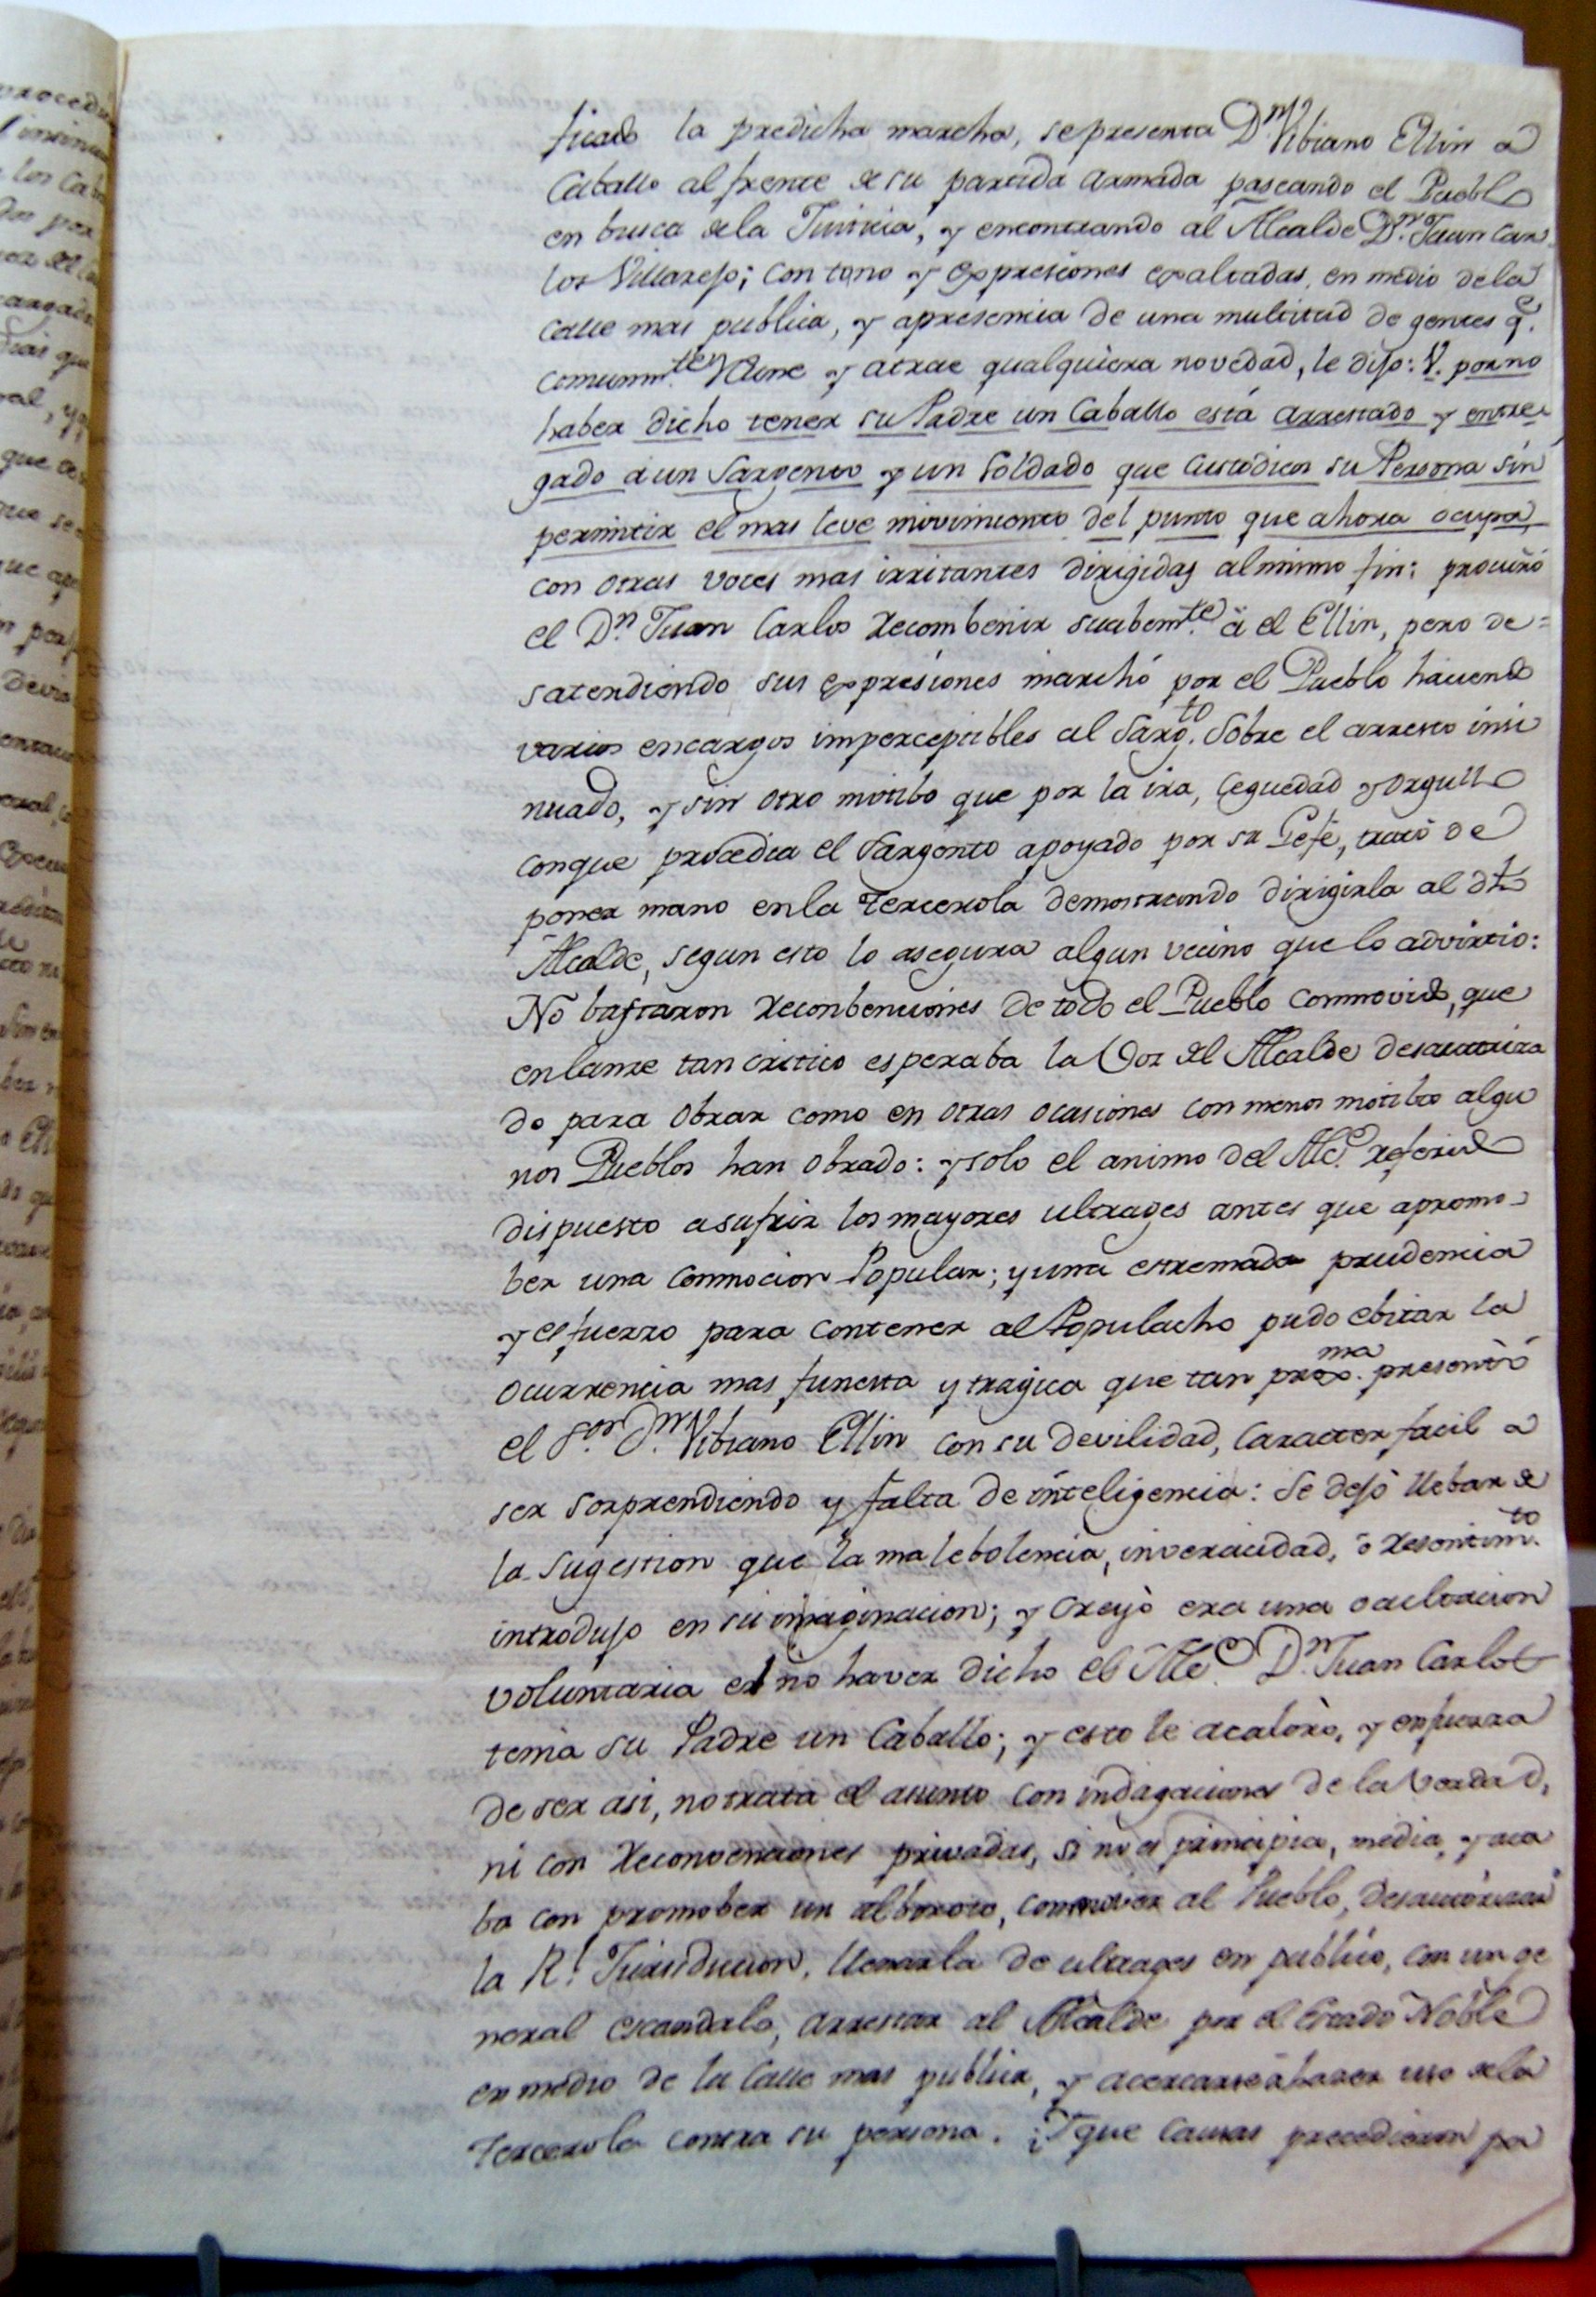 ficado la predicha marcha, se presenta Dn. Vibiano Ellin a
Caballo al frente de su partida armada paseando el Pueblo
en busca dela Justicia, y encontrando al Alcalde Dn. Juan Car
los Villarejo; con tono y expresiones exaltadas, en medio dela
calle mas publica, y apresencia de una multitud de gentes qe.
comunmte. reune y atrae qualquiera novedad, le dijo: V. por no
haber dicho tener su Padre un Caballo está arrestado y entre
gado á un Sargento y un Soldado que custodien su Persona sin
permitir el mas leve movimiento del punto que ahora ocupa,
con otras voces mas irritantes dirigidas almismo fin: procuró
el Dn. Juan Carlos recombenir suabemte. á el Ellin, pero de=
satendiendo sus expresiones marchó por el Pueblo haciendo
varios encargos imperceptibles al Sargto. sobre el arresto insi
nuado, y sin otro motibo que por la ira, ceguedad y orgullo
conque procedia el Sargento apoyado por su Gefe, trató de
poner mano enla tercerola demostrando dirigirla al dho
Alcalde, segun esto lo asegura algun vecino que lo advirtio:
No bastaron reconbenciones de todo el Pueblo conmovido, que
enlanze tan critico esperaba la Voz del Alcalde desautoriza
do para obrar como en otras ocasiones con menos motibo algu
nos Pueblos han obrado: y solo el animo del Alce. referido
dispuesto asufrir los mayores ultrages antes que apromo-
ber una conmocion Popular; y una estremada prudencia
y esfuerzo para contener al Populacho pudo ebitar la
ocurrencia mas funesta y tragica que tan proxma. presentó
el Sor. Dn. Vibiano Ellin con su devilidad, caracter facil a
ser sorprendiendo y falta de inteligencia: Se dejó llebar de
la sugestion que la malebolencia, inveracidad, ó resentimto.
introdujo en su imaginacion; y creyó era una ocultacion
voluntaria el no haver dicho el Alce. Dn. Juan Carlos
tenia su Padre un Caballo; y esto le acaloró, y enfuerza
de ser asi, no trata el asunto con indagaciones de la verdad,
ni con reconvenciones privadas, si no es principia, media, y aca
ba con promober un alboroto, conmover al Pueblo, desautorizar
la Rl. Jurisdiccion, llenarla de ultrages en publico, con un ge
neral escandalo, arrestar al Alcalde por el Estado Noble
en medio de la Calle mas publica, y acercarse á hacer uso dela
tercerola contra su persona. ¿Y que causas precedieron pa